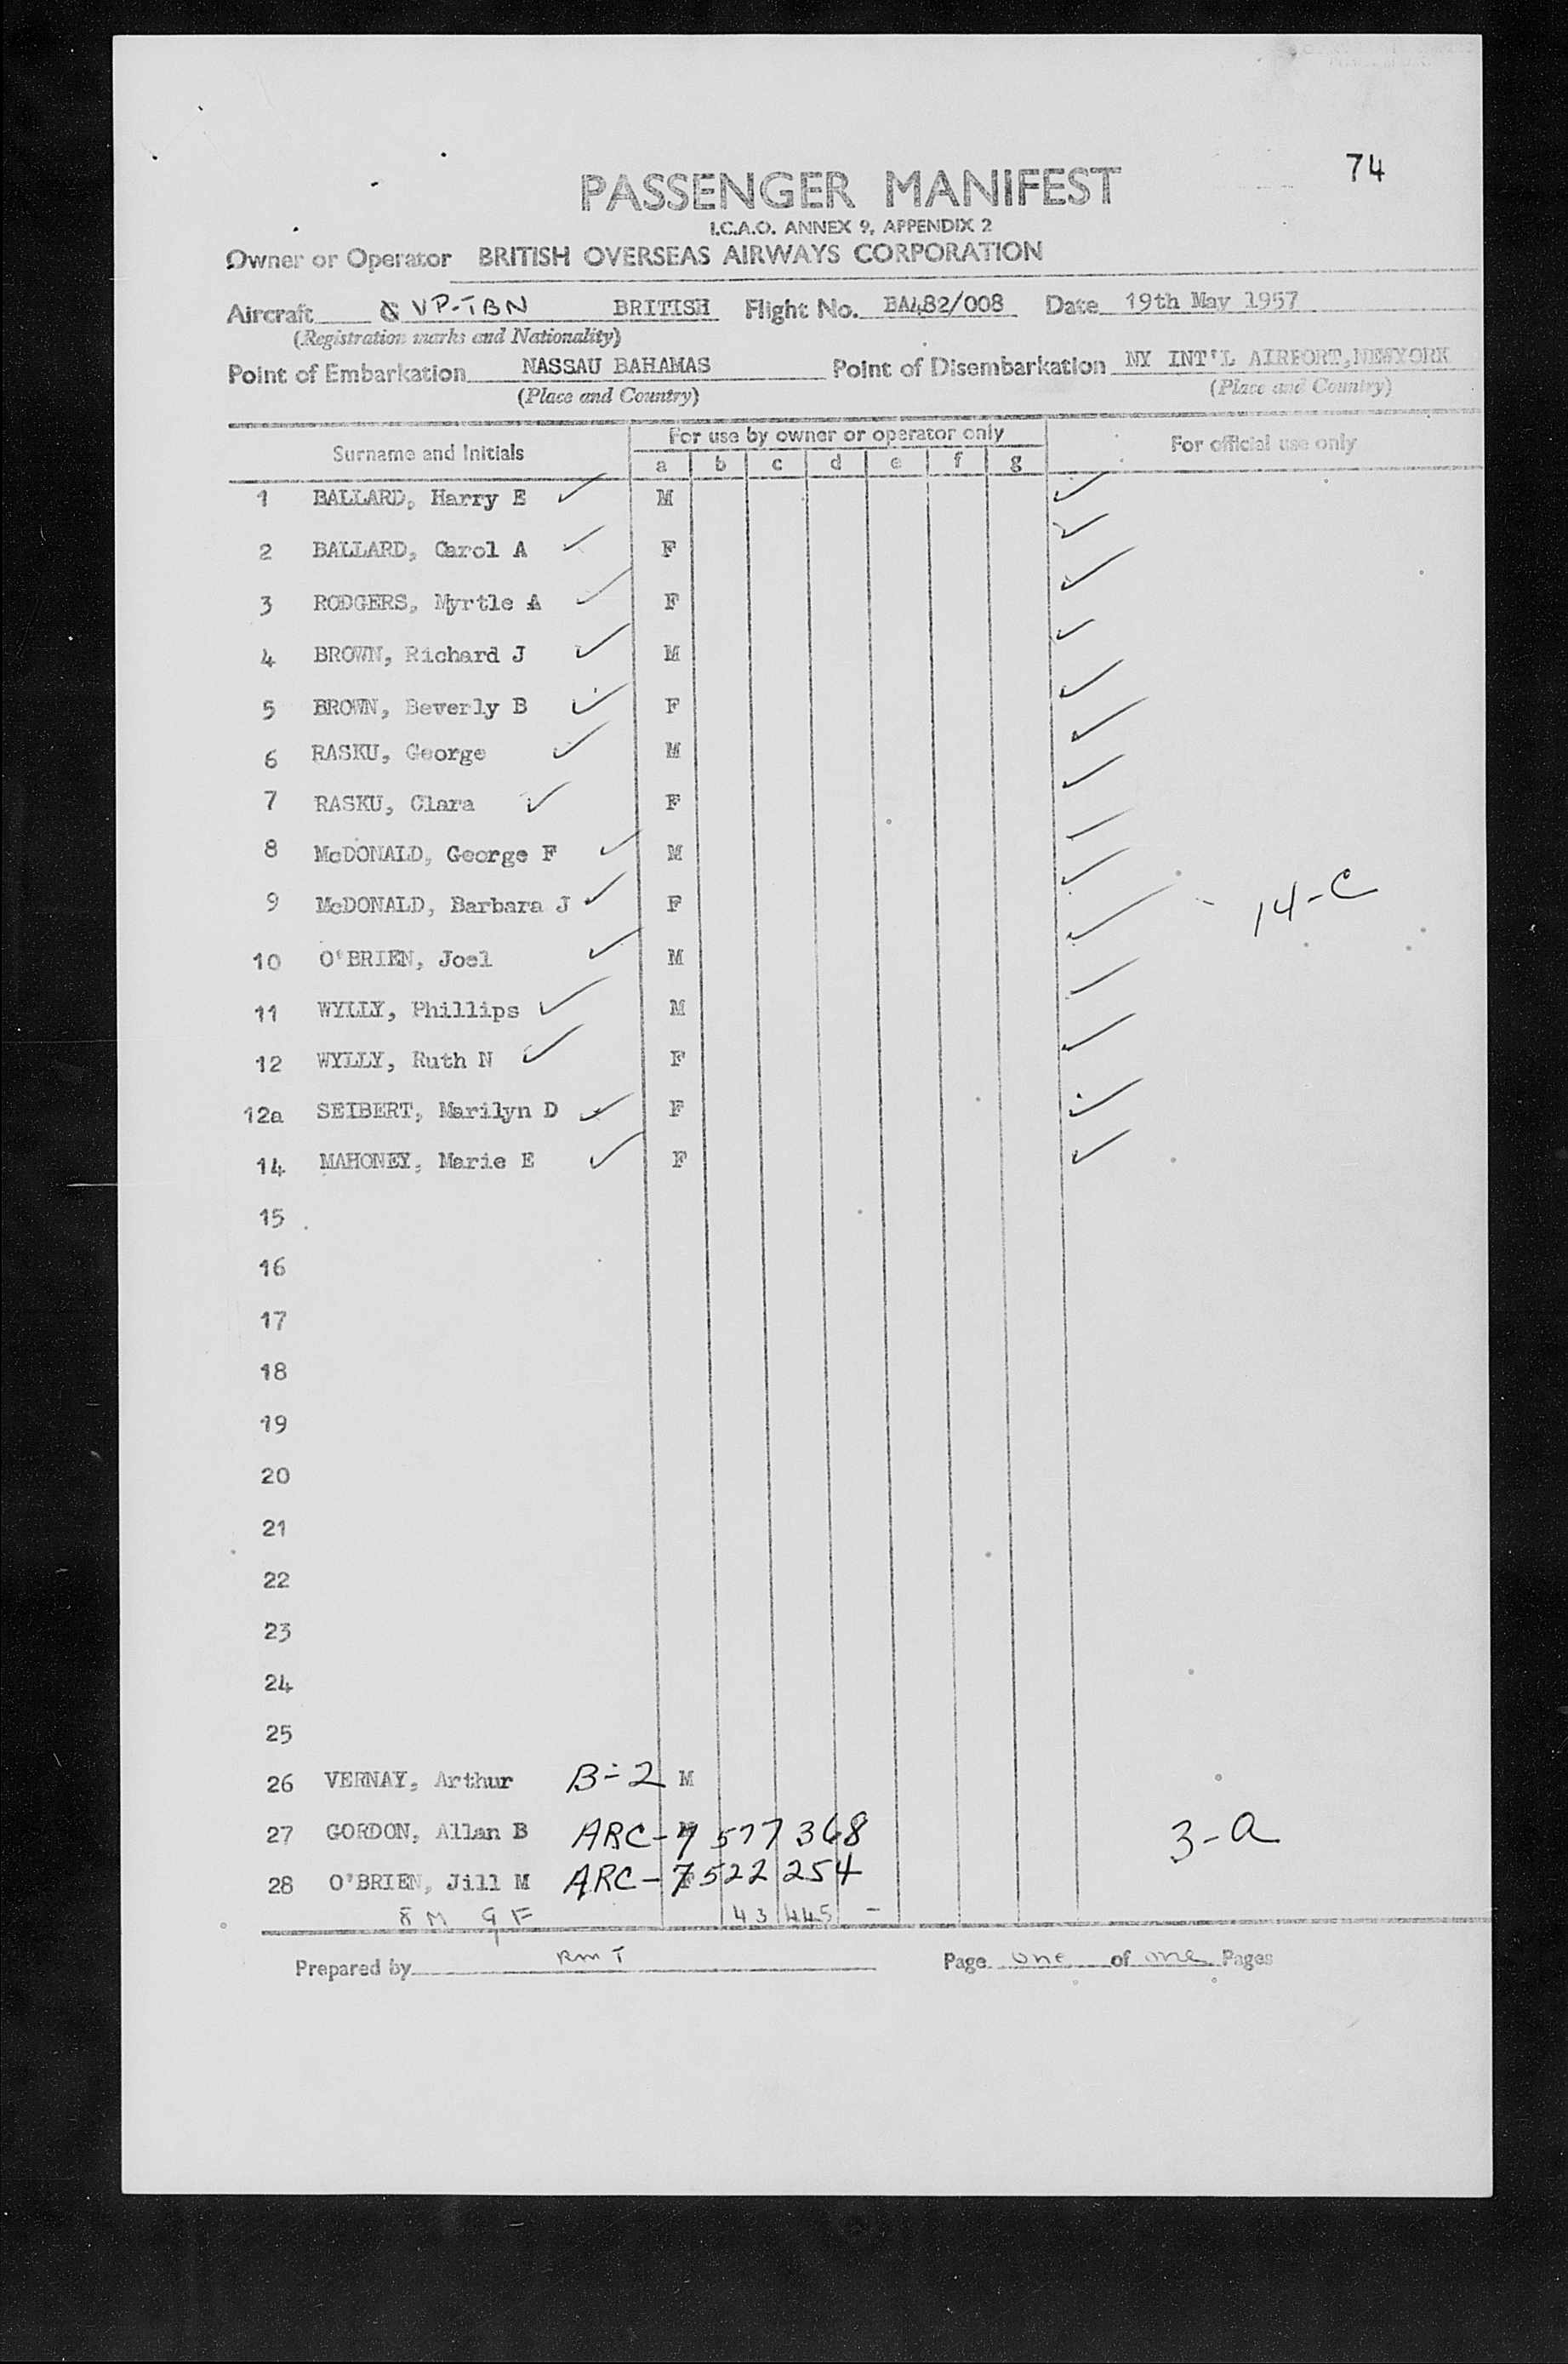 74
PASSENGER MANIFEST
I.C.A.O. ANNEX 9, APPENDIX 2
Owner or Operator BRITISH OVERSEAS AIRWAYS CORPORATION
Aircraft VP-TBN BRITISH Flight No. BA482/008 Date 19th May 1957
(Registration marks and Nationality)
Point of Embarkation NASSAU BAHAMAS Point of Disembarkation NY INT'L AIRPORT,NEWYORK
(Place and Country) (Place and Country)
Surname and Initials For use by owner or operator only For official use only
a b c d e f g
1 BALLARD, Harry E ✓ M ✓
2 BALLARD, Carol A ✓ F ✓
3 RODGERS, Myrtle A ✓ F ✓
4 BROWN, Richard J ✓ M ✓
5 BROWN, Beverly B ✓ F ✓
6 RASKU, George ✓ M ✓
7 RASKU, Clara ✓ F ✓
8 McDONALD, George F ✓ M ✓
9 McDONALD, Barbara J ✓ F ✓ - 14-C
10 O'BRIEN, Joel ✓ M ✓
11 WYLLY, Phillips ✓ M ✓
12 WYLLY, Ruth N ✓ F ✓
12a SEIBERT, Marilyn D ✓ F ✓
14 MAHONEY, Marie E ✓ F ✓
15
16
17
18
19
20
21
22
23
24
25
26 VERNAY, Arthur B-2 M
27 GORDON, Allan B ARC-7 577 368 3-a
28 O'BRIEN, Jill M ARC-7522 254
8 M 9 F 43 445 -
Prepared by RMT Page one of one Pages